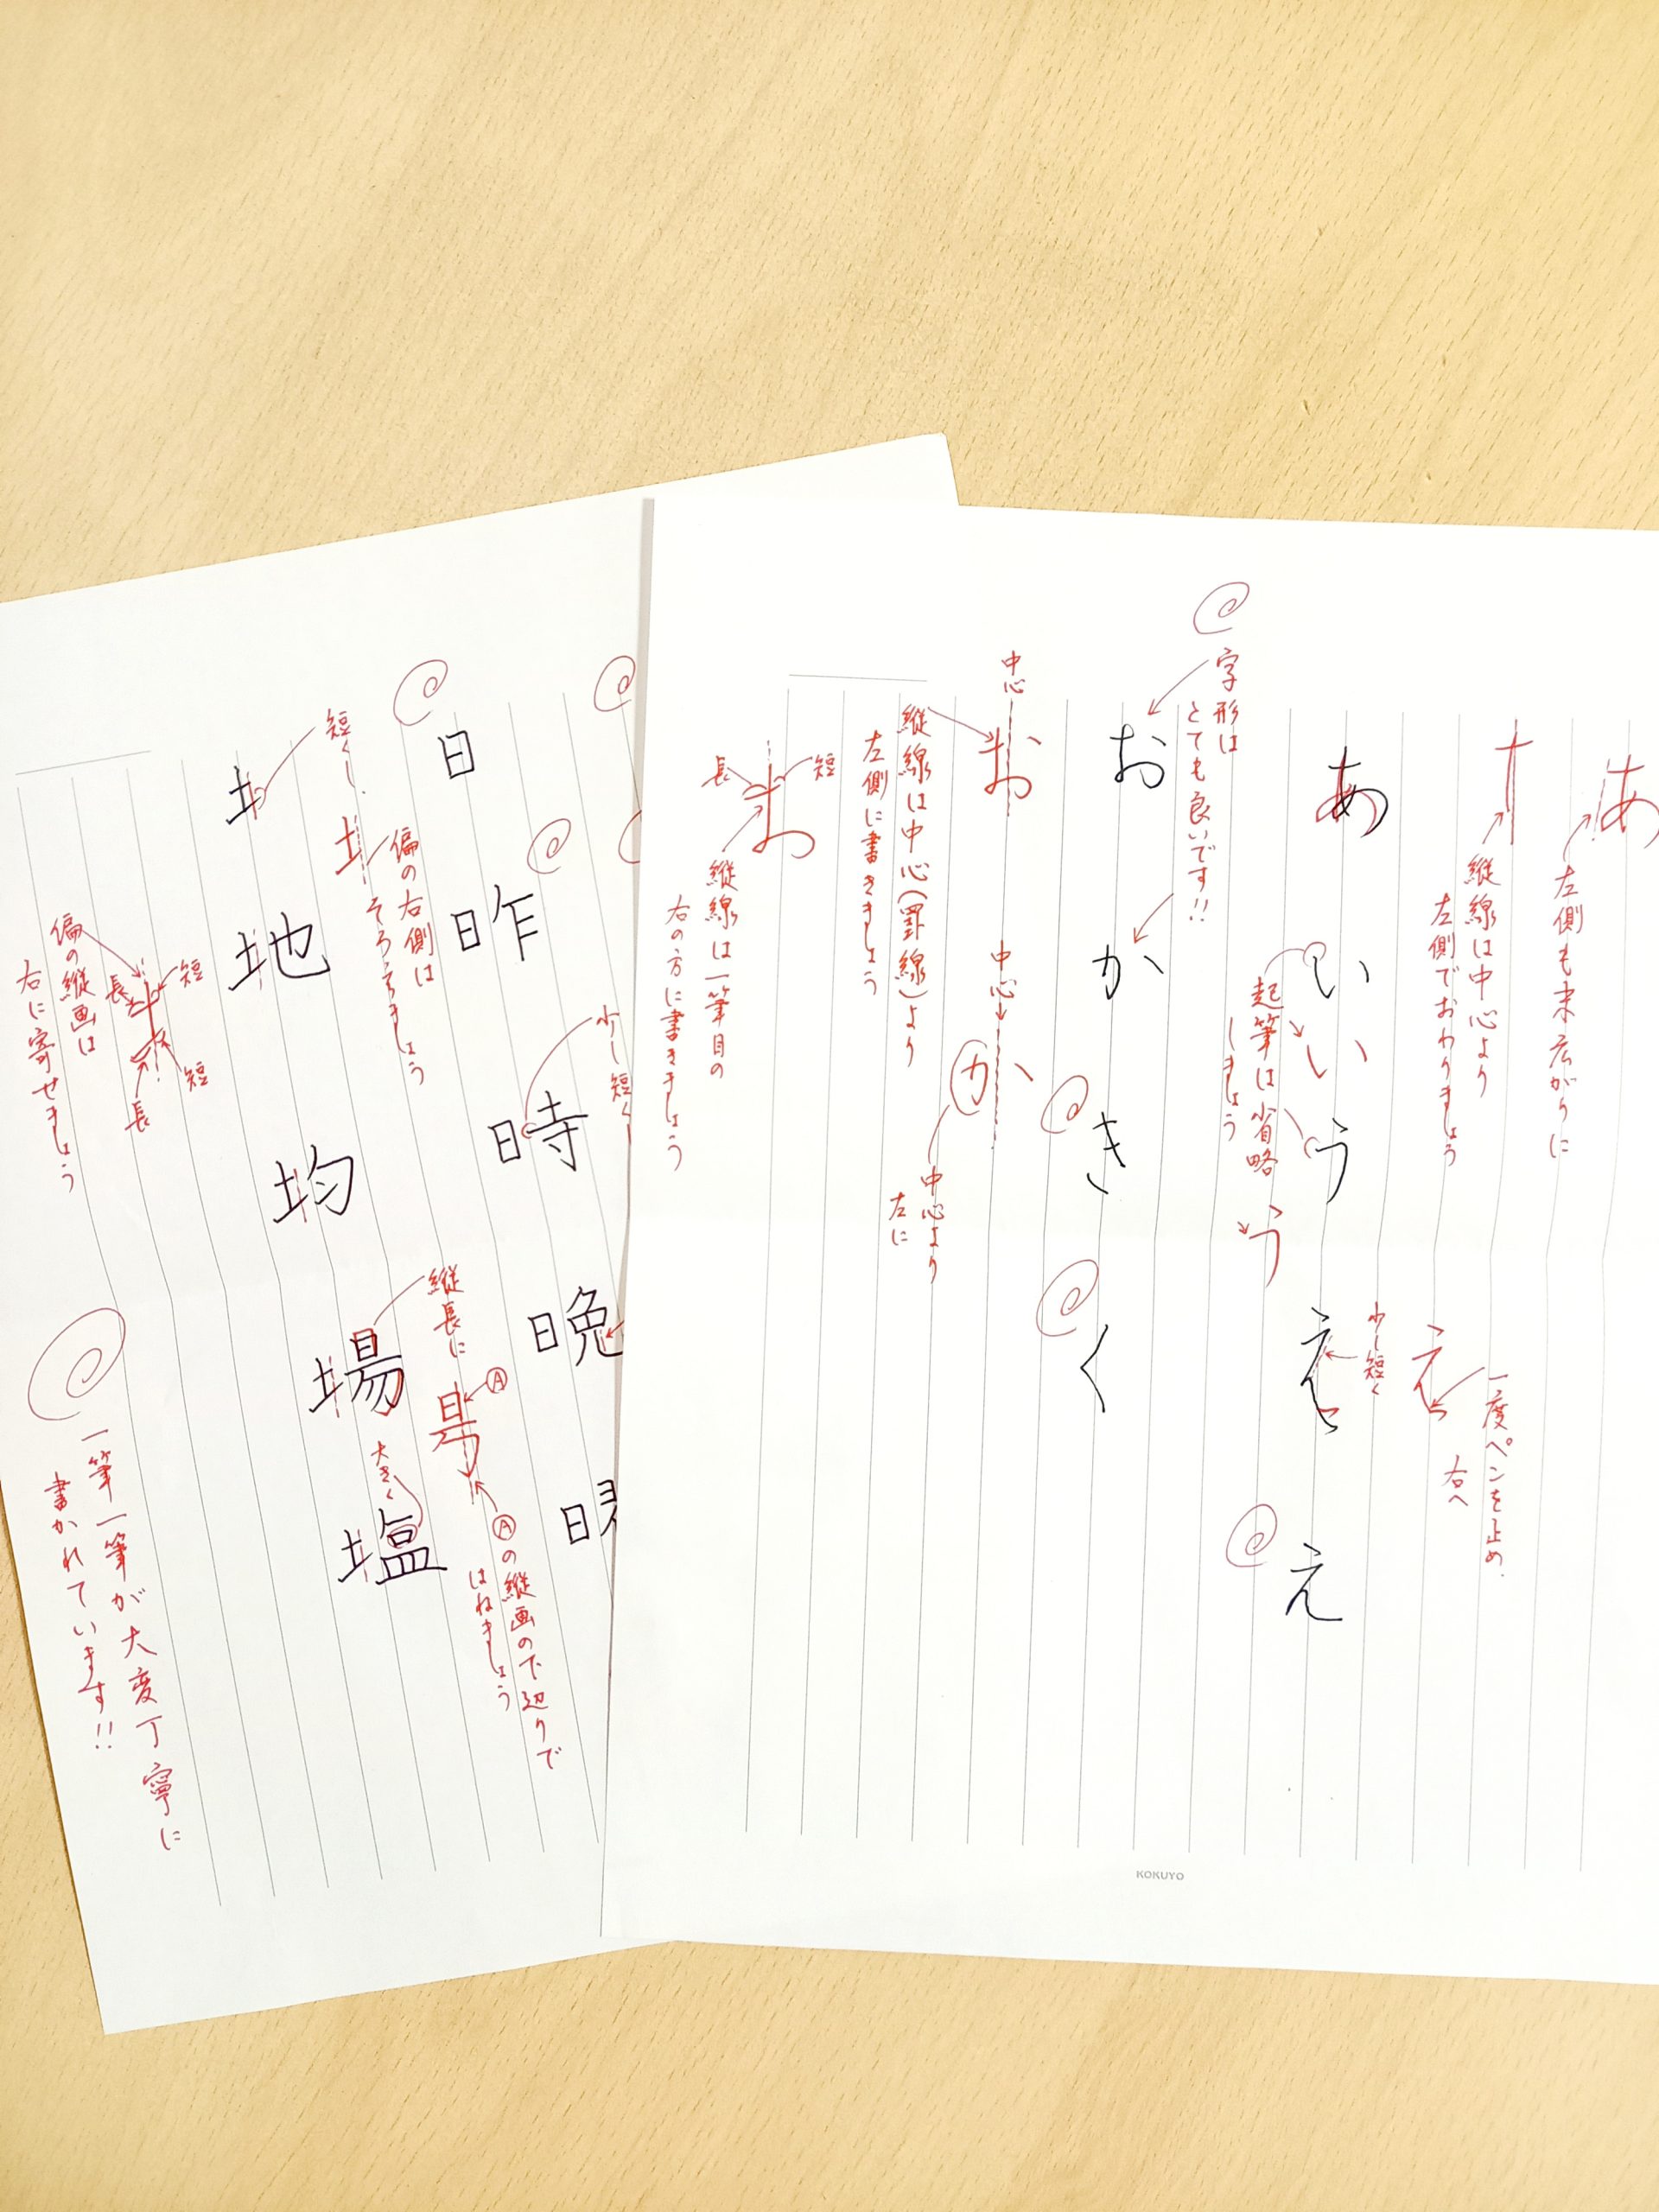 あ
左側も末広がりに
縦線は中心より
左側でおわりましょう
あ
い
う
え
え
起筆は省略
しましょう
い
う
少し短く
え
一度ペンを止め、
右へ
字形は
とても良いです!!
お
か
き
く
中心
お
中心
か
中心より
左に
縦線は中心(罫線)より
左側に書きましょう
長
短
縦線は一筆目の
右の方に書きましょう
KOKUYO
日
昨
時
晩
少し短く
短くし、
偏の右側は
そろえましょう
地
均
場
塩
縦長に
大きく
Ⓐ
Ⓐの縦画の下辺りで
はねましょう
偏の縦画は
右に寄せましょう
短
長
短
長
一筆一筆が大変丁寧に
書かれています!!